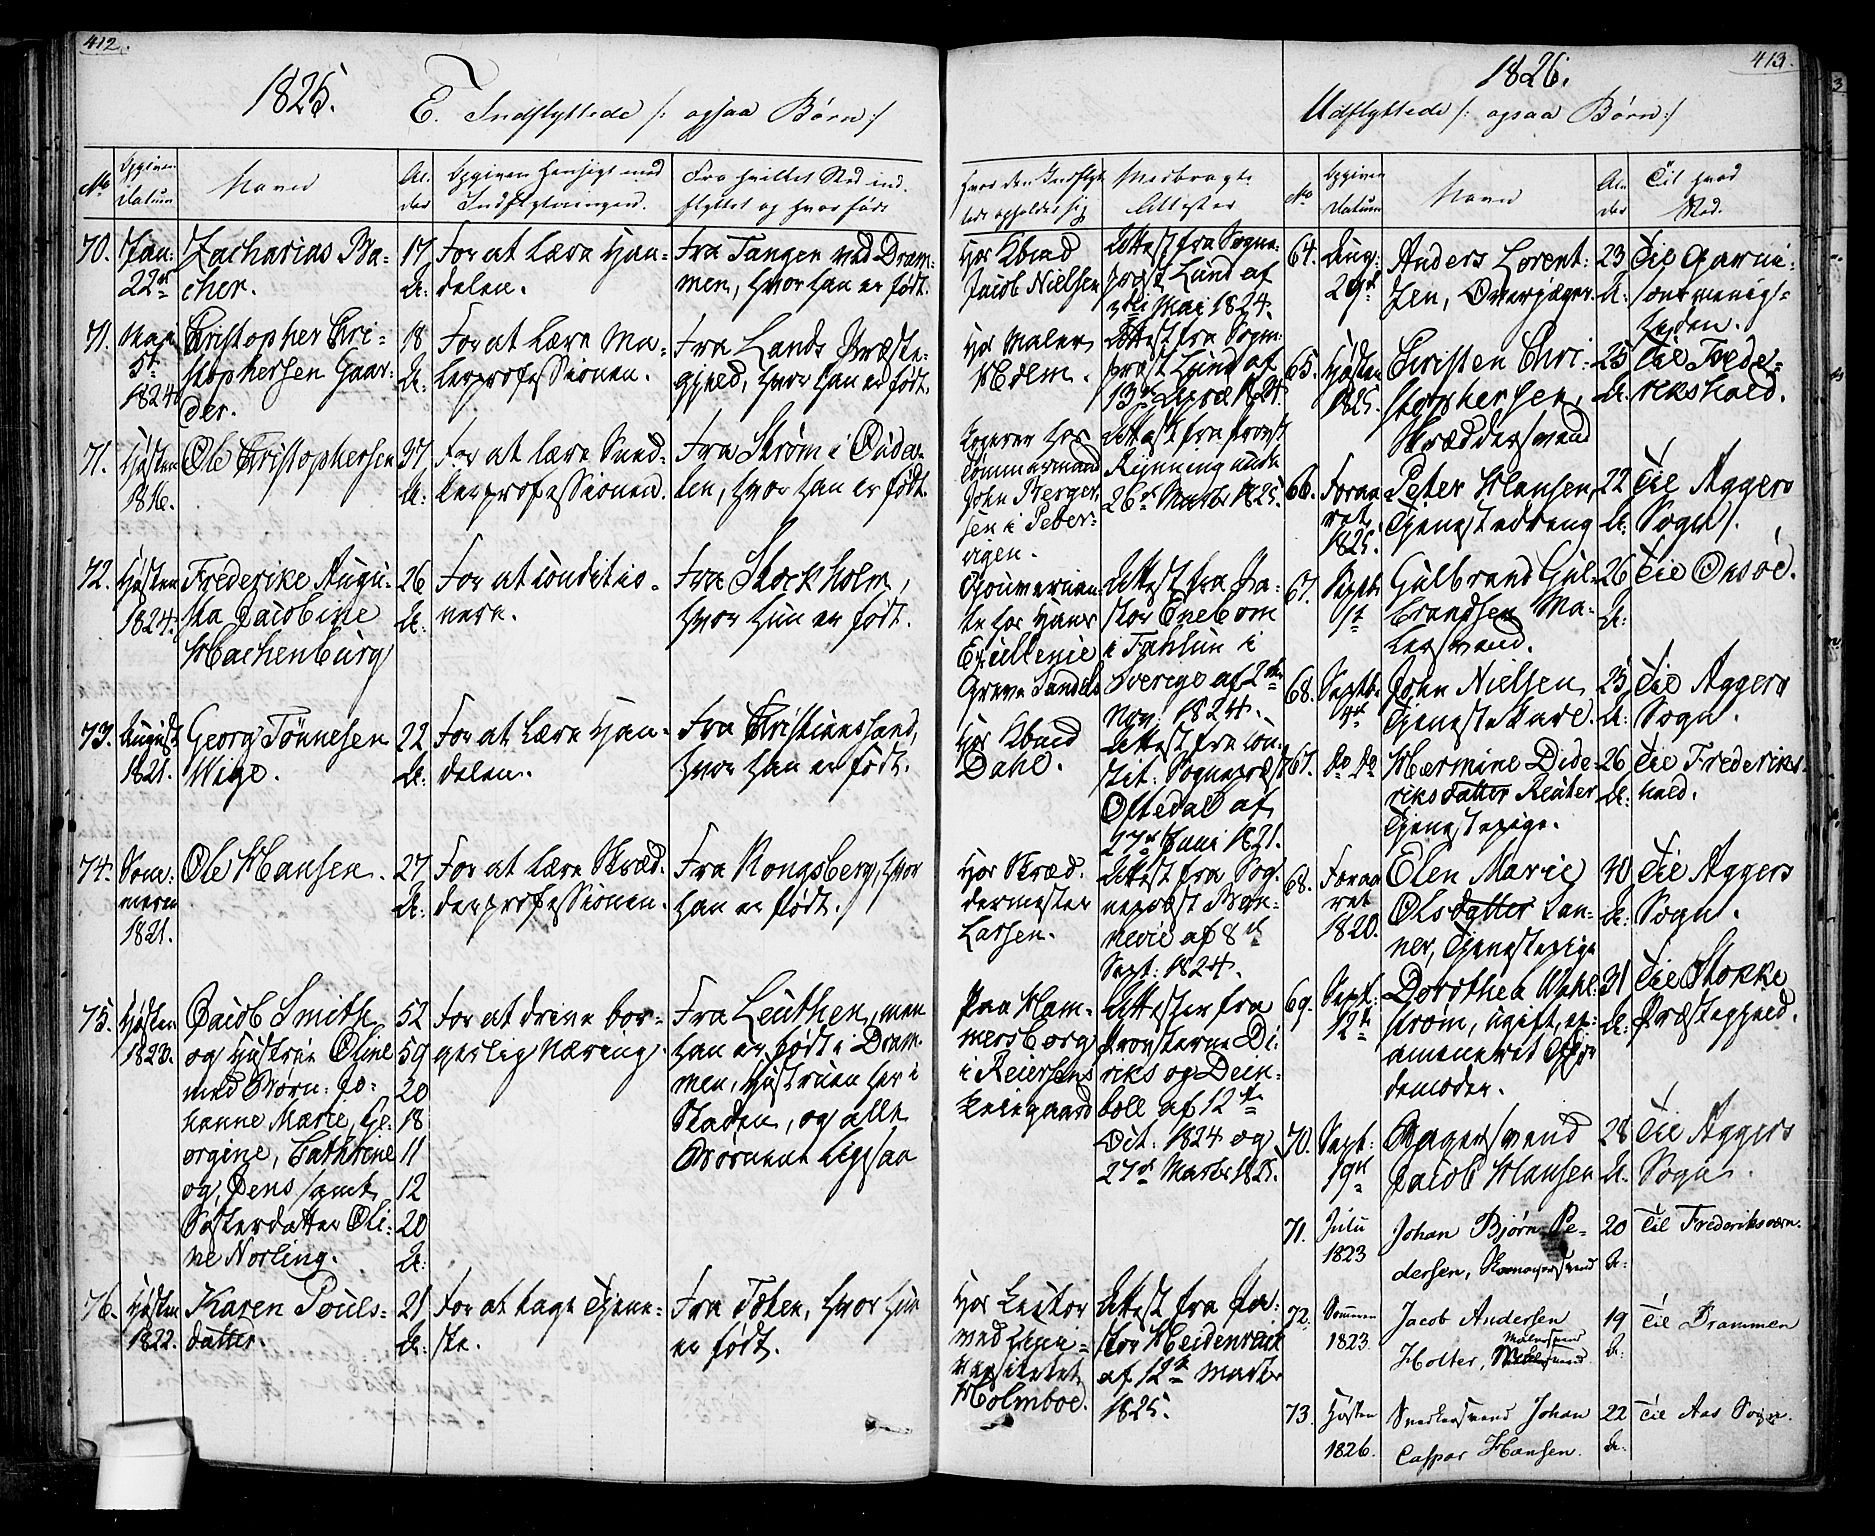 412.
1825.
E. Indflyttede /: ogsaa Børn :/
No
Opgiven Datum
Navn
Al-
der
Opgiven Hensigt med
Indflytningen.
Fra hvilket Sted ind-
flyttet og hvor født
Hvor den Indflyt-
tede opholder sig
Medbragte
Attester
70.
Jan:
22de
Zacharias Ba-
cher.
17
A:
For at lære Han-
delen.
Fra Tangen ved Dram-
men, hvor han er født.
Hos Kbmd
Jacob Nielsen
Attest fra Sogne-
præst Lund af
Mai 1824.
71.
Maji
5te
1824
Christopher Chri-
stophersen Gaar-
der.
18
A:
For at lære Ma-
lerprofessionen.
Fra Lands Præste-
gjeld, hvor han er født.
Hos Maler
Holm.
Attest fra Sogne-
præst Lund af
13de April 1824.
71.
Høsten
1816.
Ole Christophersen
37
A:
For at lære Sned-
kerprofessionen.
Fra Strøm i Odda-
len, hvor han er født.
Logerer hos
Tømmermand
John Berger-
sen i Peter-
vigen.
Attest fra Provst
Rynning
26de Marts 1825.
72.
Høsten
1824.
Frederike Augu-
sta Jacobine
Hachenburg
26
A:
For at conditio-
nere.
Fra Stockholm,
hvor hun er født.
Gouvernan-
te hos Hans
Excellence
Greve Sandels
Attest fra Pa-
stor Enebom
i Fahlun i
Sverige af 2den
Nov: 1824.
73.
August
1821.
Georg Tönnesen
Wige.
22
A:
For at lære Han-
delen.
Fra Christianssand,
hvor han er født.
Hos Kbmd
Dahl.
Attest fra con-
stit: Sognepræst
Oftedal af
27de Juni 1821.
74.
Som-
meren
1821.
Ole Hansen.
27
A:
For at lære Skræd-
derprofessionen.
Fra Kongsberg, hvor
han er født.
Hos Skræd-
dermester
Larsen.
Attest fra Sog-
neprovst Bon-
nevie af 8de
Sept: 1824.
75.
Høsten
1823.
Jacob Smith
og Hustrue Oline
med Børn: Jo-
hanne Marie, Ge-
orgine, Cathrine
og Jens samt
Søsterdatter Oli-
ne Norling.
52
59
20
18
11
12
20
A:
For at drive bor-
gerlig Næring.
Fra Leuthen, men
han er født i Dram-
men, Hustruen her i
Staden, og alle
Børnene ligesaa
Paa Ham-
mersborg
i Reiersens
Leiegaard
Attester fra
Provsterne Di-
riks og Dein-
boll af 12te
Oct: 1824 og
27de Marts 1825.
76.
Høsten
1822.
Karen Pouls-
datter.
21
A:
For at tage Tjene-
ste.
Fra Toten, hvor hun
er født.
Hos Lector
ved Uni-
versitetet
Holmboe.
Attest fra Pa-
stor Heidenreich
af 12te Marts
1825.
413.
1826.
Udflyttede /: ogsaa Børn :/
No
Opgiven
Datum
Navn
Al-
der
Til hvad
Sted.
64.
Aug:
29de
Anders Lorent-
zen, Overjæger.
23
A:
Til Garni-
sonsmenig-
heden.
65.
Høsten
1825.
Christen Chri-
stophersen,
Skræddersvend
25
A:
Til Frede-
rikshald.
66.
Foraa-
ret
1825.
Peter Hansen,
Tjenestedreng
22
A:
Til Aggers
Sogn.
67.
Septbr
1ste
Gulbrand Gul-
brandsen Ma-
lersvend.
26
A:
Til Onsöe.
68.
Septbr.
4de
John Nielsen
Tjenestekarl.
25
A:
Til Aggers
Sogn.
67.
do do
Hermine Dide-
riksdatter Reuter
Tjenestepige.
26
A:
Til Frederiks-
hald.
68.
Foraa-
ret
1820.
Elen Marie
Olsdatter Lan-
ner, Tjenestepige
40
A:
Til Aggers
Sogn.
69.
Sept:
12te
Dorothea Wahl-
strøm, ugift, ex-
amineret Gjor-
demoder.
31
A:
Til Stokke
Præstegjeld.
70.
Sept:
19de
Bagersvend
Jacob Hansen
28
A:
Til Aggers
Sogn.
71.
Juli
1823
Johan Bjørn Pe-
dersen, Skomagersvend
20
A:
Til Frederiksværn.
72.
Sommeren
1823.
Jacob Andersen
Holter, Malersvend
19
A:
Til Drammen
73.
Høsten
1826.
Snedkersvend Johan
Caspar Hansen.
22
A:
Til Aas Sogn.